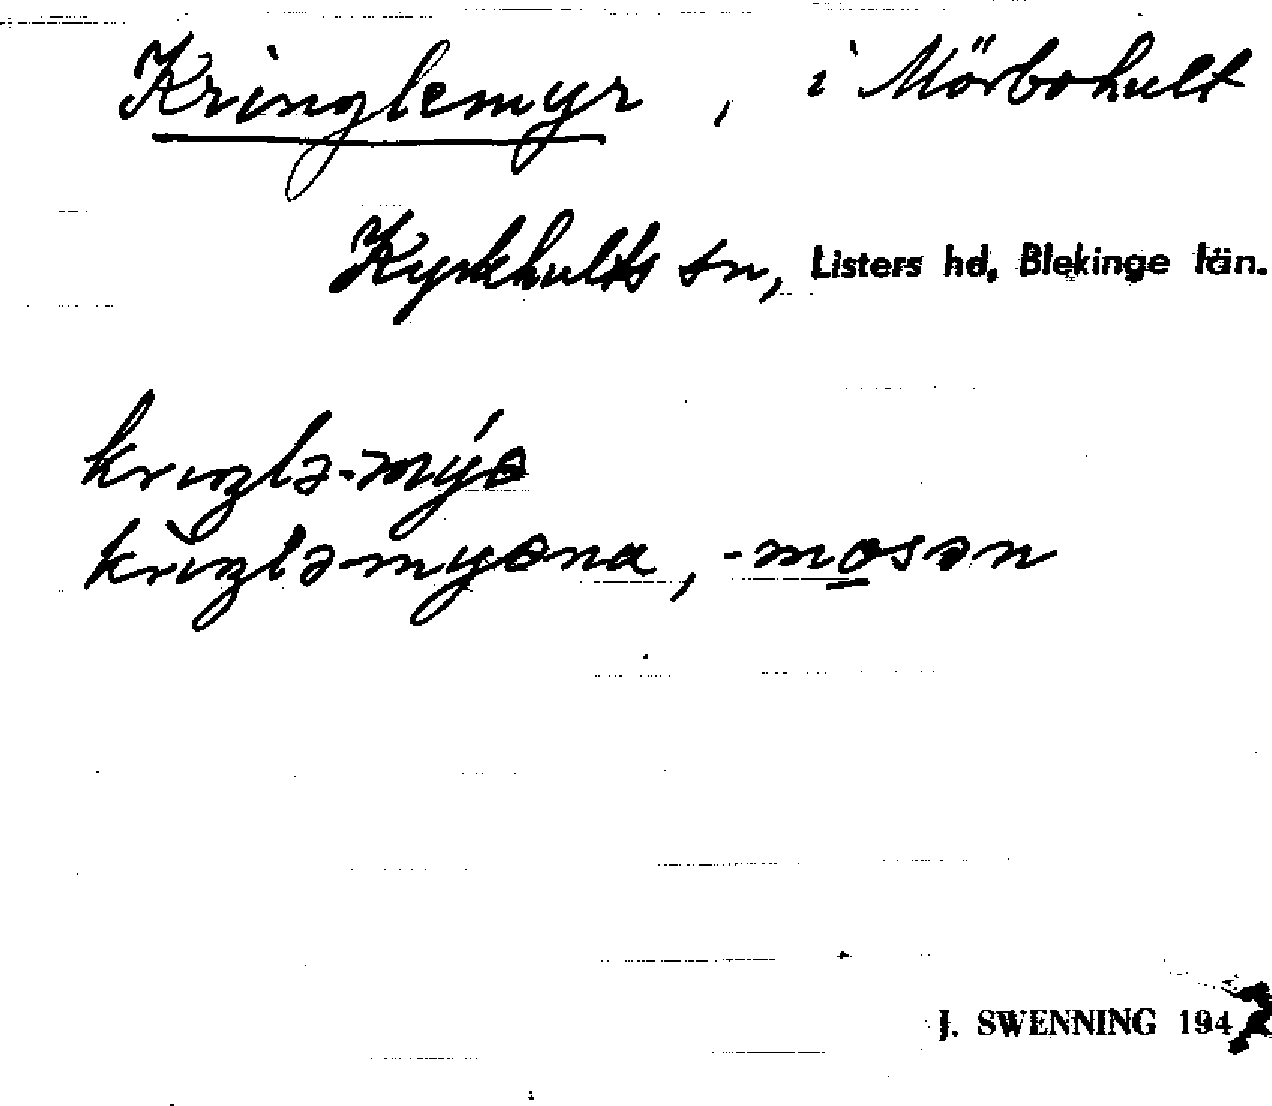 Kringlemyr, i Mörbohult
Kyrkhults sn, Listers hd, Blekinge län.
krıŋlə-mýɵ
krı̀ŋləmyɵna, -mo̲sən
J. SWENNING 194